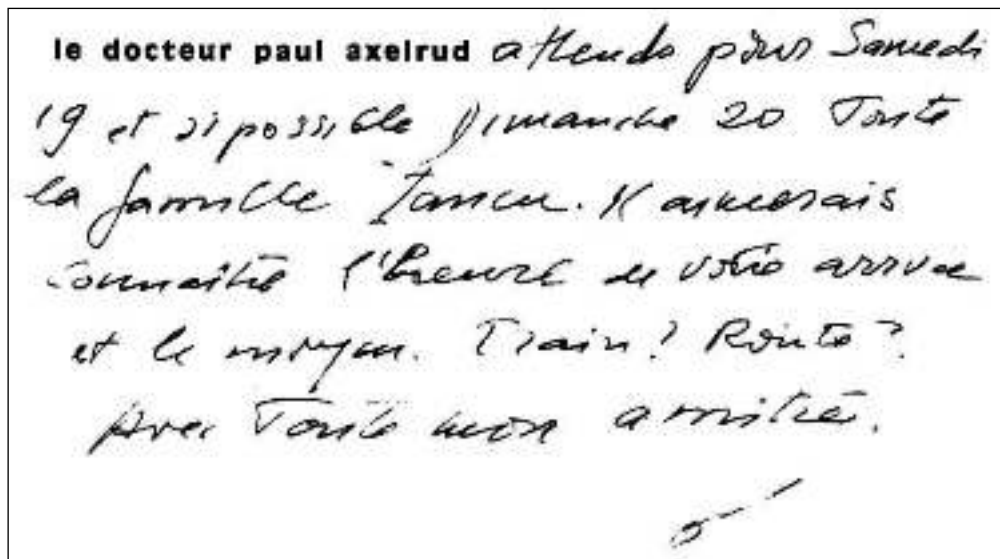 le docteur paul axelrud attends pour Samedi
19 et si possible Dimanche 20 Toute
la famille Iancu. J'aimerais
connaitre l'heure de votre arrivée
et le moyen. Train? Route?
Avec Toute mon amitié.